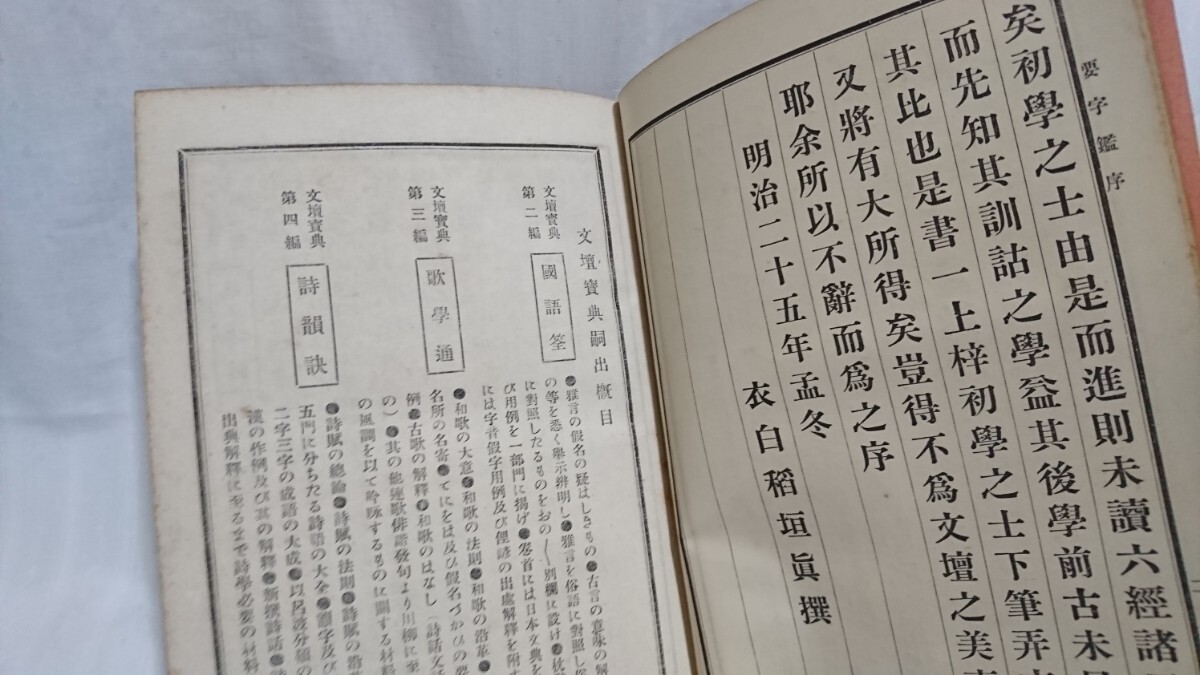 要字鑑序
矣初學之士由是而進則未讀六經諸
而先知其訓詁之學益其後學前古未
其比也是書一上梓初學之士下筆弄
又將有大所得矣豈得不爲文壇之美
耶余所以不辭而爲之序
明治二十五年孟冬
衣白稻垣眞撰
文壇寶典嗣出概目
文壇寶典
第二編
國語筌
●雅言の假名の疑はしきもの●古言の意味の解
の等を悉く擧示辨明し●雅言を俗語に對照し俗
に對照したるものをおの〳〵別欄に設け●枕
び用例を一部門に揭げ●卷首には日本文典を
には字音假字用例及び俚諺の出處解釋を附す
文壇寶典
第三編
歌學通
●和歌の大意●和歌の法則●和歌の沿革●
名所の名寄●てにをは及び假名づかひの要
例●古歌の解釋●和歌のはなし(詩話文
の)●其の他連歌俳諧發句より川柳に至
の風調を以て吟詠するものに關する材料
文壇寶典
第四編
詩韻訣
●詩賦の總論●詩賦の法則●詩賦の沿
五門に分ちたる詩語の大全●韻字及び
二字三字の成語の大成●以呂波分類の
漢の作例及び其の解釋●新撰詩話●
出典解釋に至るまで詩學必要の材料